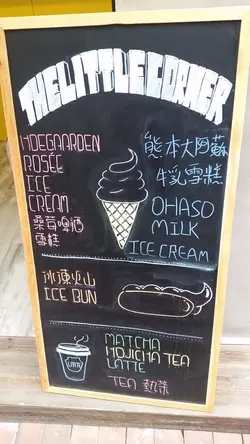 THE LITTLE CORNER
HOEGAARDEN
ROSÉE
ICE
CREAM
桑莓啤酒
雪糕
熊本大阿蘇
牛乳雪糕
OHASO
MILK
ICE CREAM
冰凍火山
ICE BUN
LATTE
MATCHA
HOJICHA TEA
LATTE
TEA 熱茶